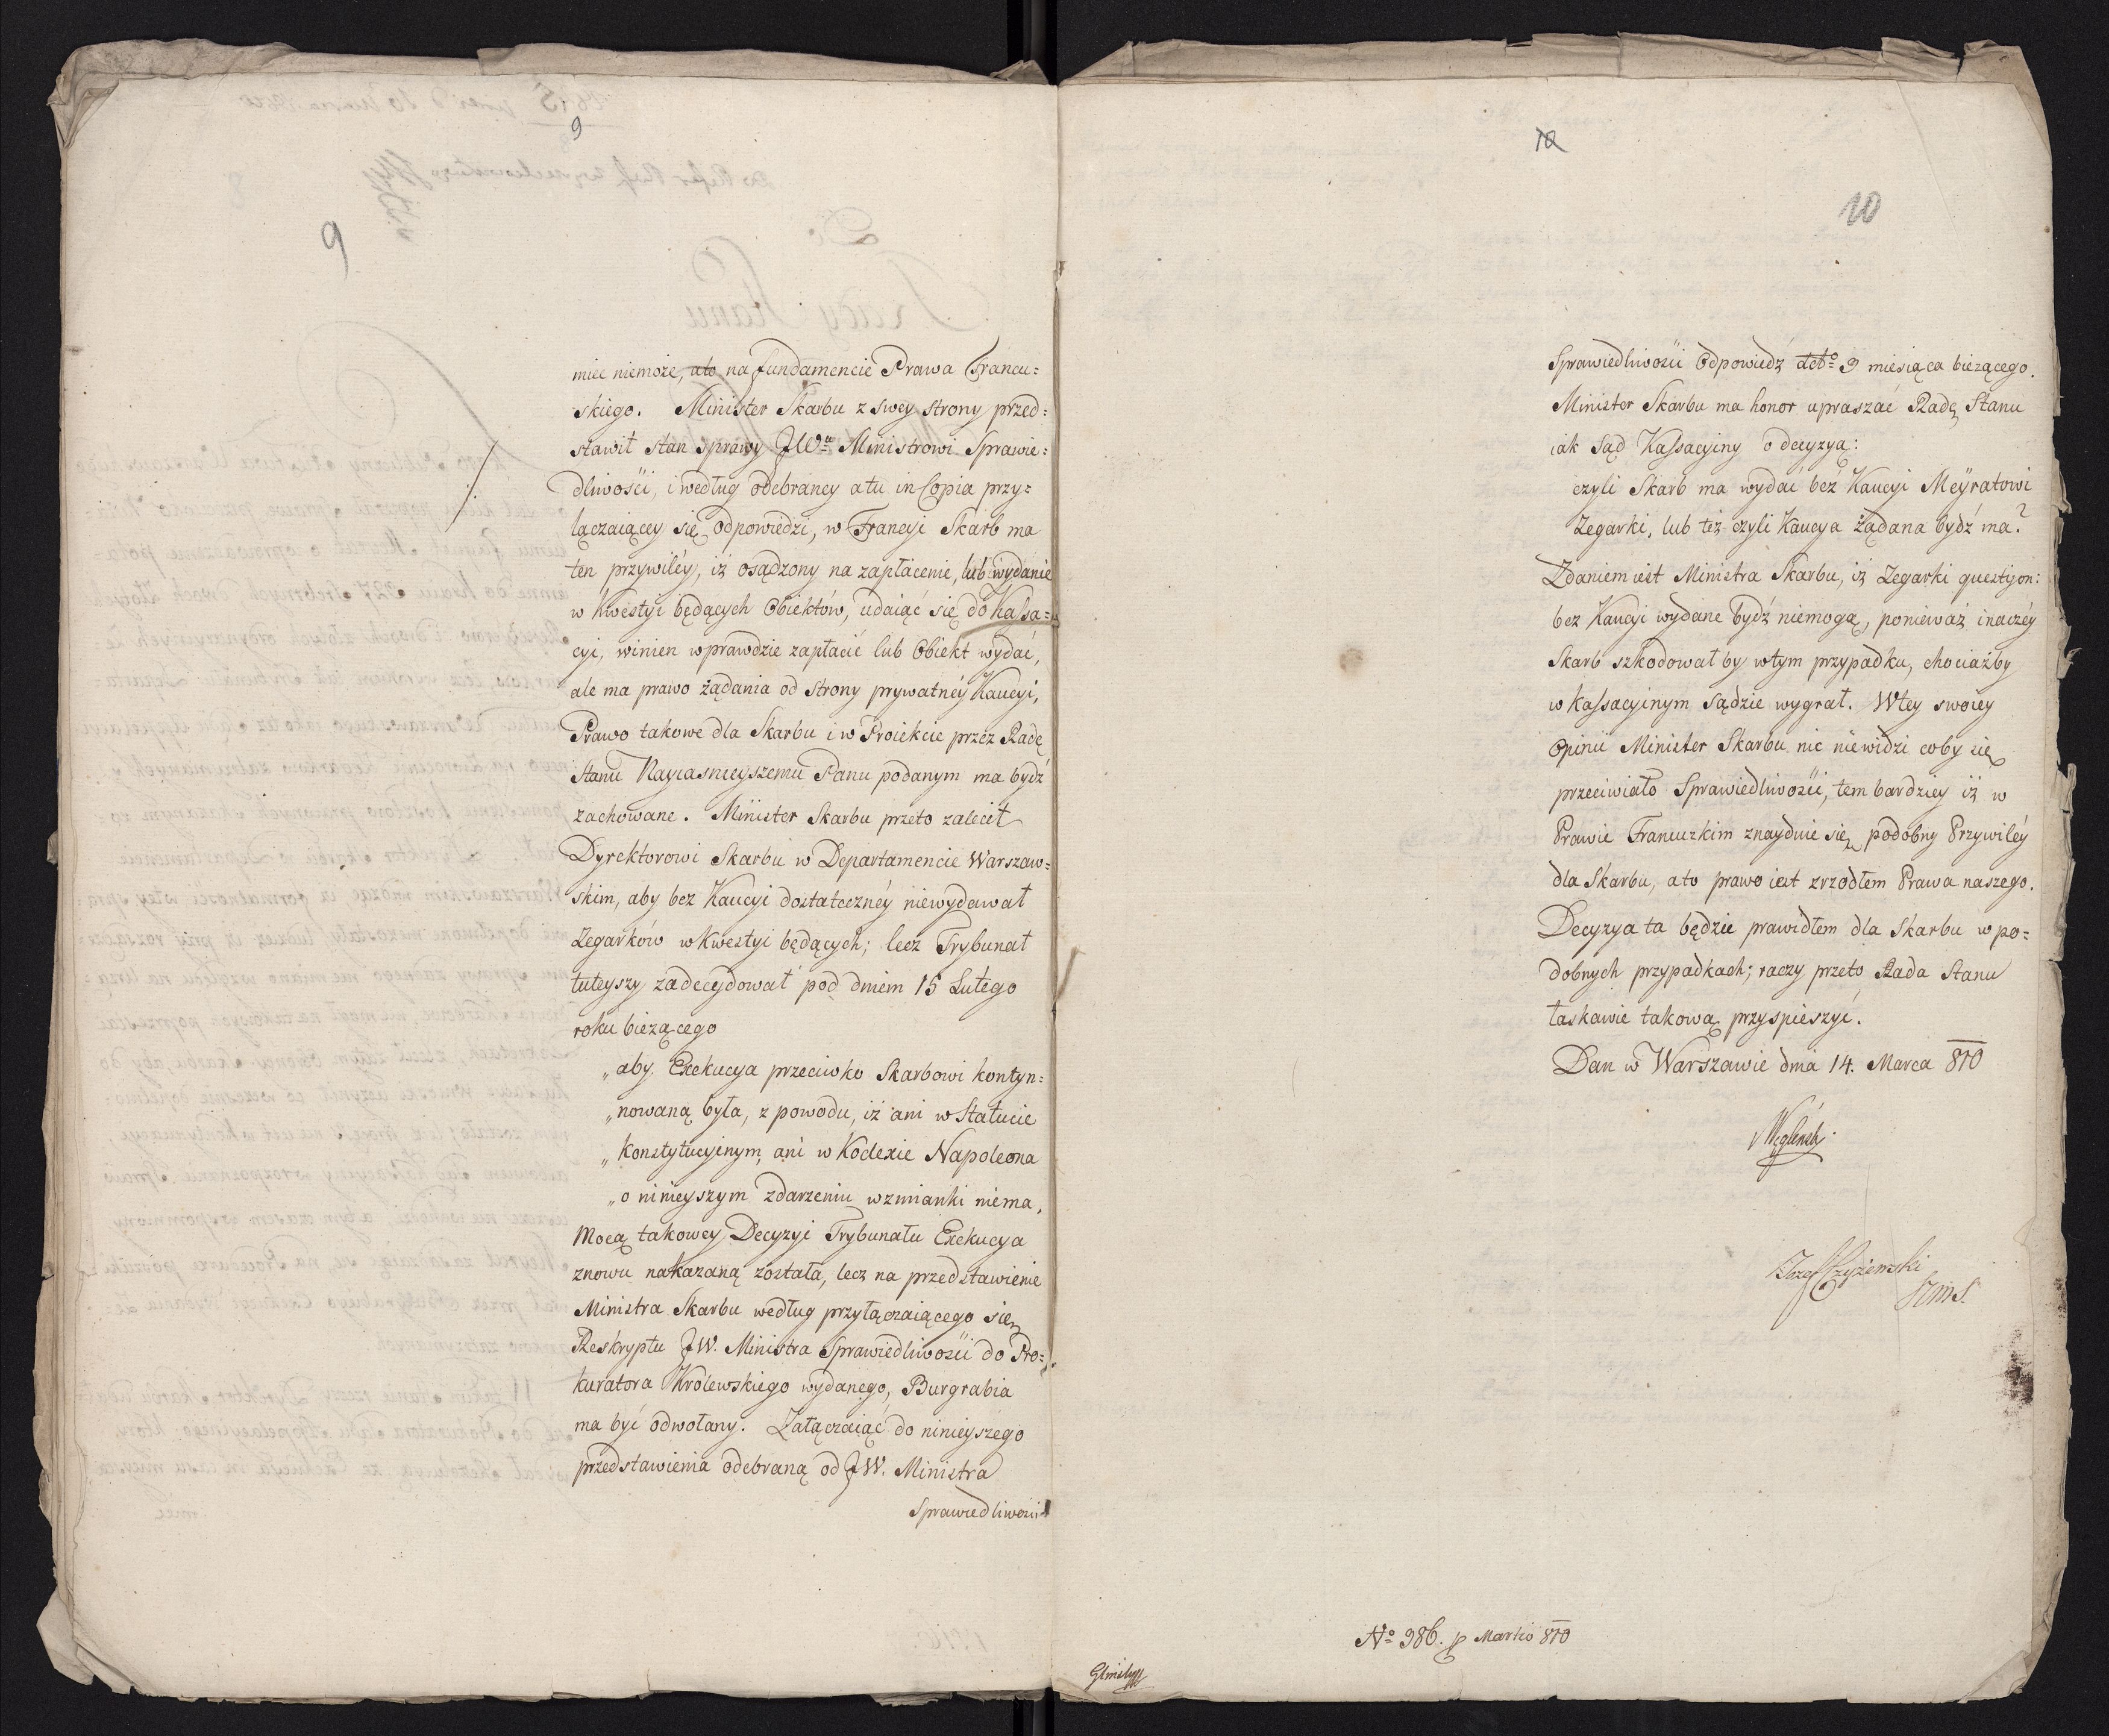 9
9
miec niemoże, ato na fundamencie Prawa Francu=
skiego. Minister Skarbu z swey strony przed=
stawił stan sprawy JWu Ministrowi Sprawie=
dliwości, i według odebraney atu in Copia przy=
łączaiącey się odpowiedzi, w Francyi Skarb ma
ten przywiléy, iż osądzony na zapłacenie, lub wydanie
w kwestyi będących Obiektów, udaiąć się do Kassa=
cyi, winien wprawdzie zapłacić lub Obiekt wydać,
ale ma prawo żądania od strony prywatnéy Kaucyi,
Prawo takowe dla Skarbu i w Proiekcie przez Radę
Stanu Nayiasnieyszemu Panu podanym ma bydź
zachowane. Minister Skarbu przeto zalecił
Dyrektorowi Skarbu w Departamencie Warszaw=
skim, aby bez Kaucyi dostateczney niewydawał
Zegarków w kwestyi będących; lecz Trybunał
tuteyszy zadecydował pod dniem 15 Lutego
roku bieżącego
„aby Exekucya przeciwko Skarbowi kontyn=
„nowaną była, z powodu, iż ani w Statucie
„Konstytucyinym, ani w Kodexie Napoleona
„o ninieyszym zdarzeniu wzmianki niema,
Mocą takowey Decyzyi Trybunału Exekucya
znowu nakazaną została, lecz na przedstawienie
Ministra Skarbu według przyłączaiącego się
Reskryptu JW. Ministra Sprawiedliwości do Pro=
kuratora Królewskiego wydanego, Burgrabia
ma być odwołany. Załączaiąć do ninieyszego
przedstawienia odebraną od JW. Ministra
Sprawiedliwości
10
10
Sprawiedliwości Odpowiedź dtto 9 miesiąca bieżącego.
Minister Skarbu ma honor upraszać Radę Stanu
iak Sąd Kassacyiny o decyzyą:
czyli Skarb ma wydać beź Kaucyi Meyratowi
Zegarki, lub też czyli Kaucya żądana bydź ma?
Zdaniem iest Ministra Skarbu, iż Zegarki questyon:
bez Kaucyi wydane bydź niemogą, ponieważ inaczéy
Skarb szkodował by wtym przypadku, chociażby
w kassacyinym sądzie wygrał. Wtey swoiey
Opinii Minister Skarbu nic niewidzi coby się
przeciwiało Sprawiedliwości, tem bardziey iż w
Prawie Francuzkim znayduie się podobny Przywiléy
dla Skarbu, ato prawo iest zrzodłem Prawa naszego.
Decyzya ta będzie prawidłem dla Skarbu w po=
dobnych przypadkach; raczy przeto Rada Stanu
łaskawie takową przyspieszyć.
Dan w Warszawie dnia 14. Marca 810
Węgleński
Józef Czyżewski
No 986. p Martio 810